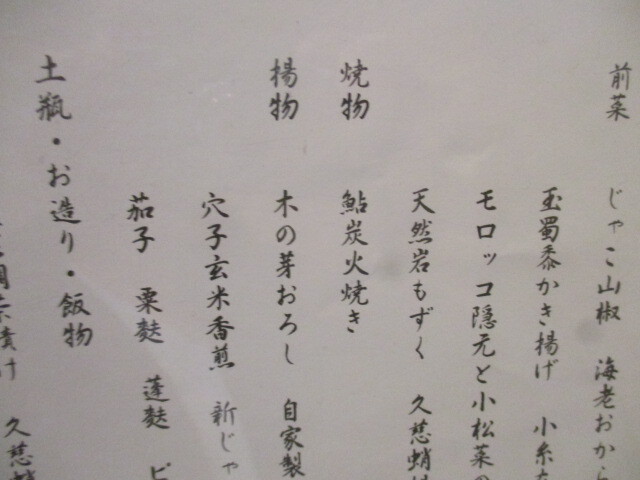 前菜　じゃこ山椒　海老おから
玉蜀黍かき揚げ　小糸
モロッコ隠元と小松菜の
天然岩もずく　久慈蛸
焼物　鮎炭火焼き
揚物　木の芽おろし　自家製
穴子玄米香煎　新じゃ
茄子　粟麩　蓬麩　ピ
土瓶・お造り・飯物
茶漬け　久慈蛸